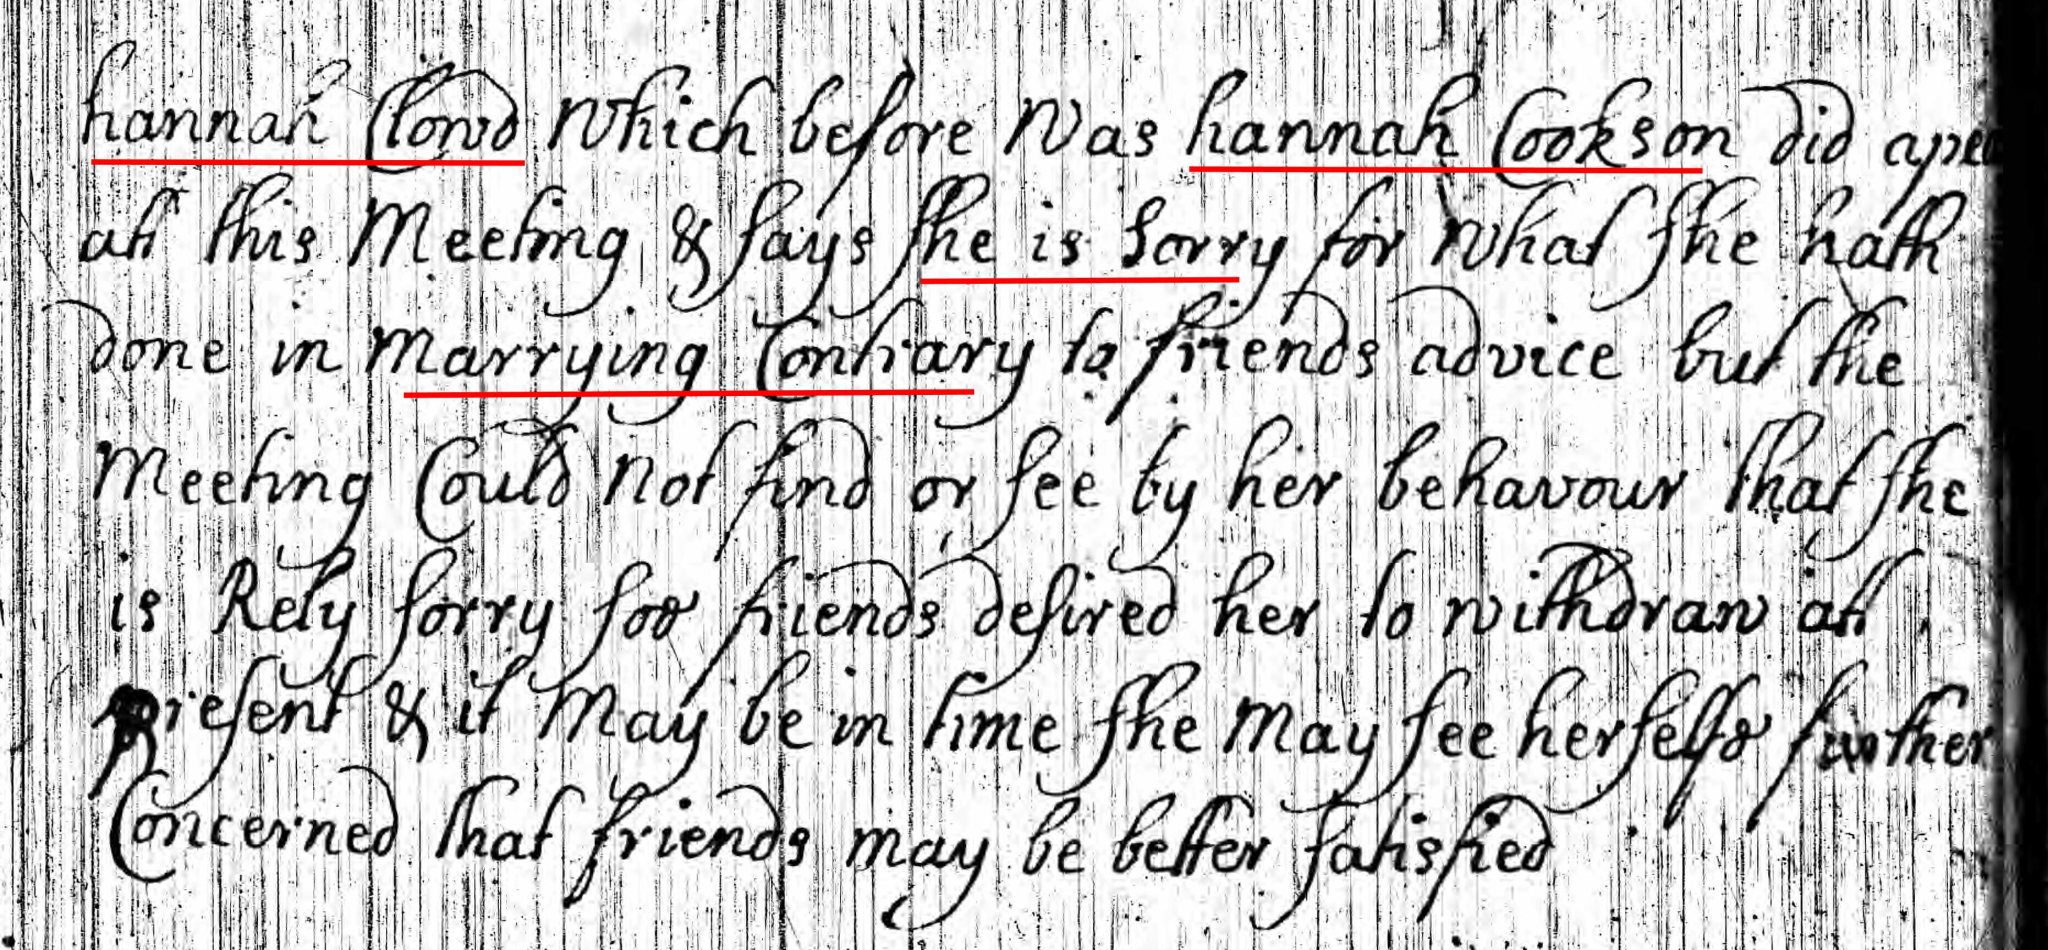 hannah Clowd Which before Was hannah Cookson did apear
att this Meeting & says she is Sorry for What she hath
done in Marrying Contrary to friends advice but the
Meeting Could Not find or see by her behavour that she
is Rely sorry soe friends desired her to withdraw att
present & it May be in time she May see herselfe further
Concerned that friends may be better satisfied